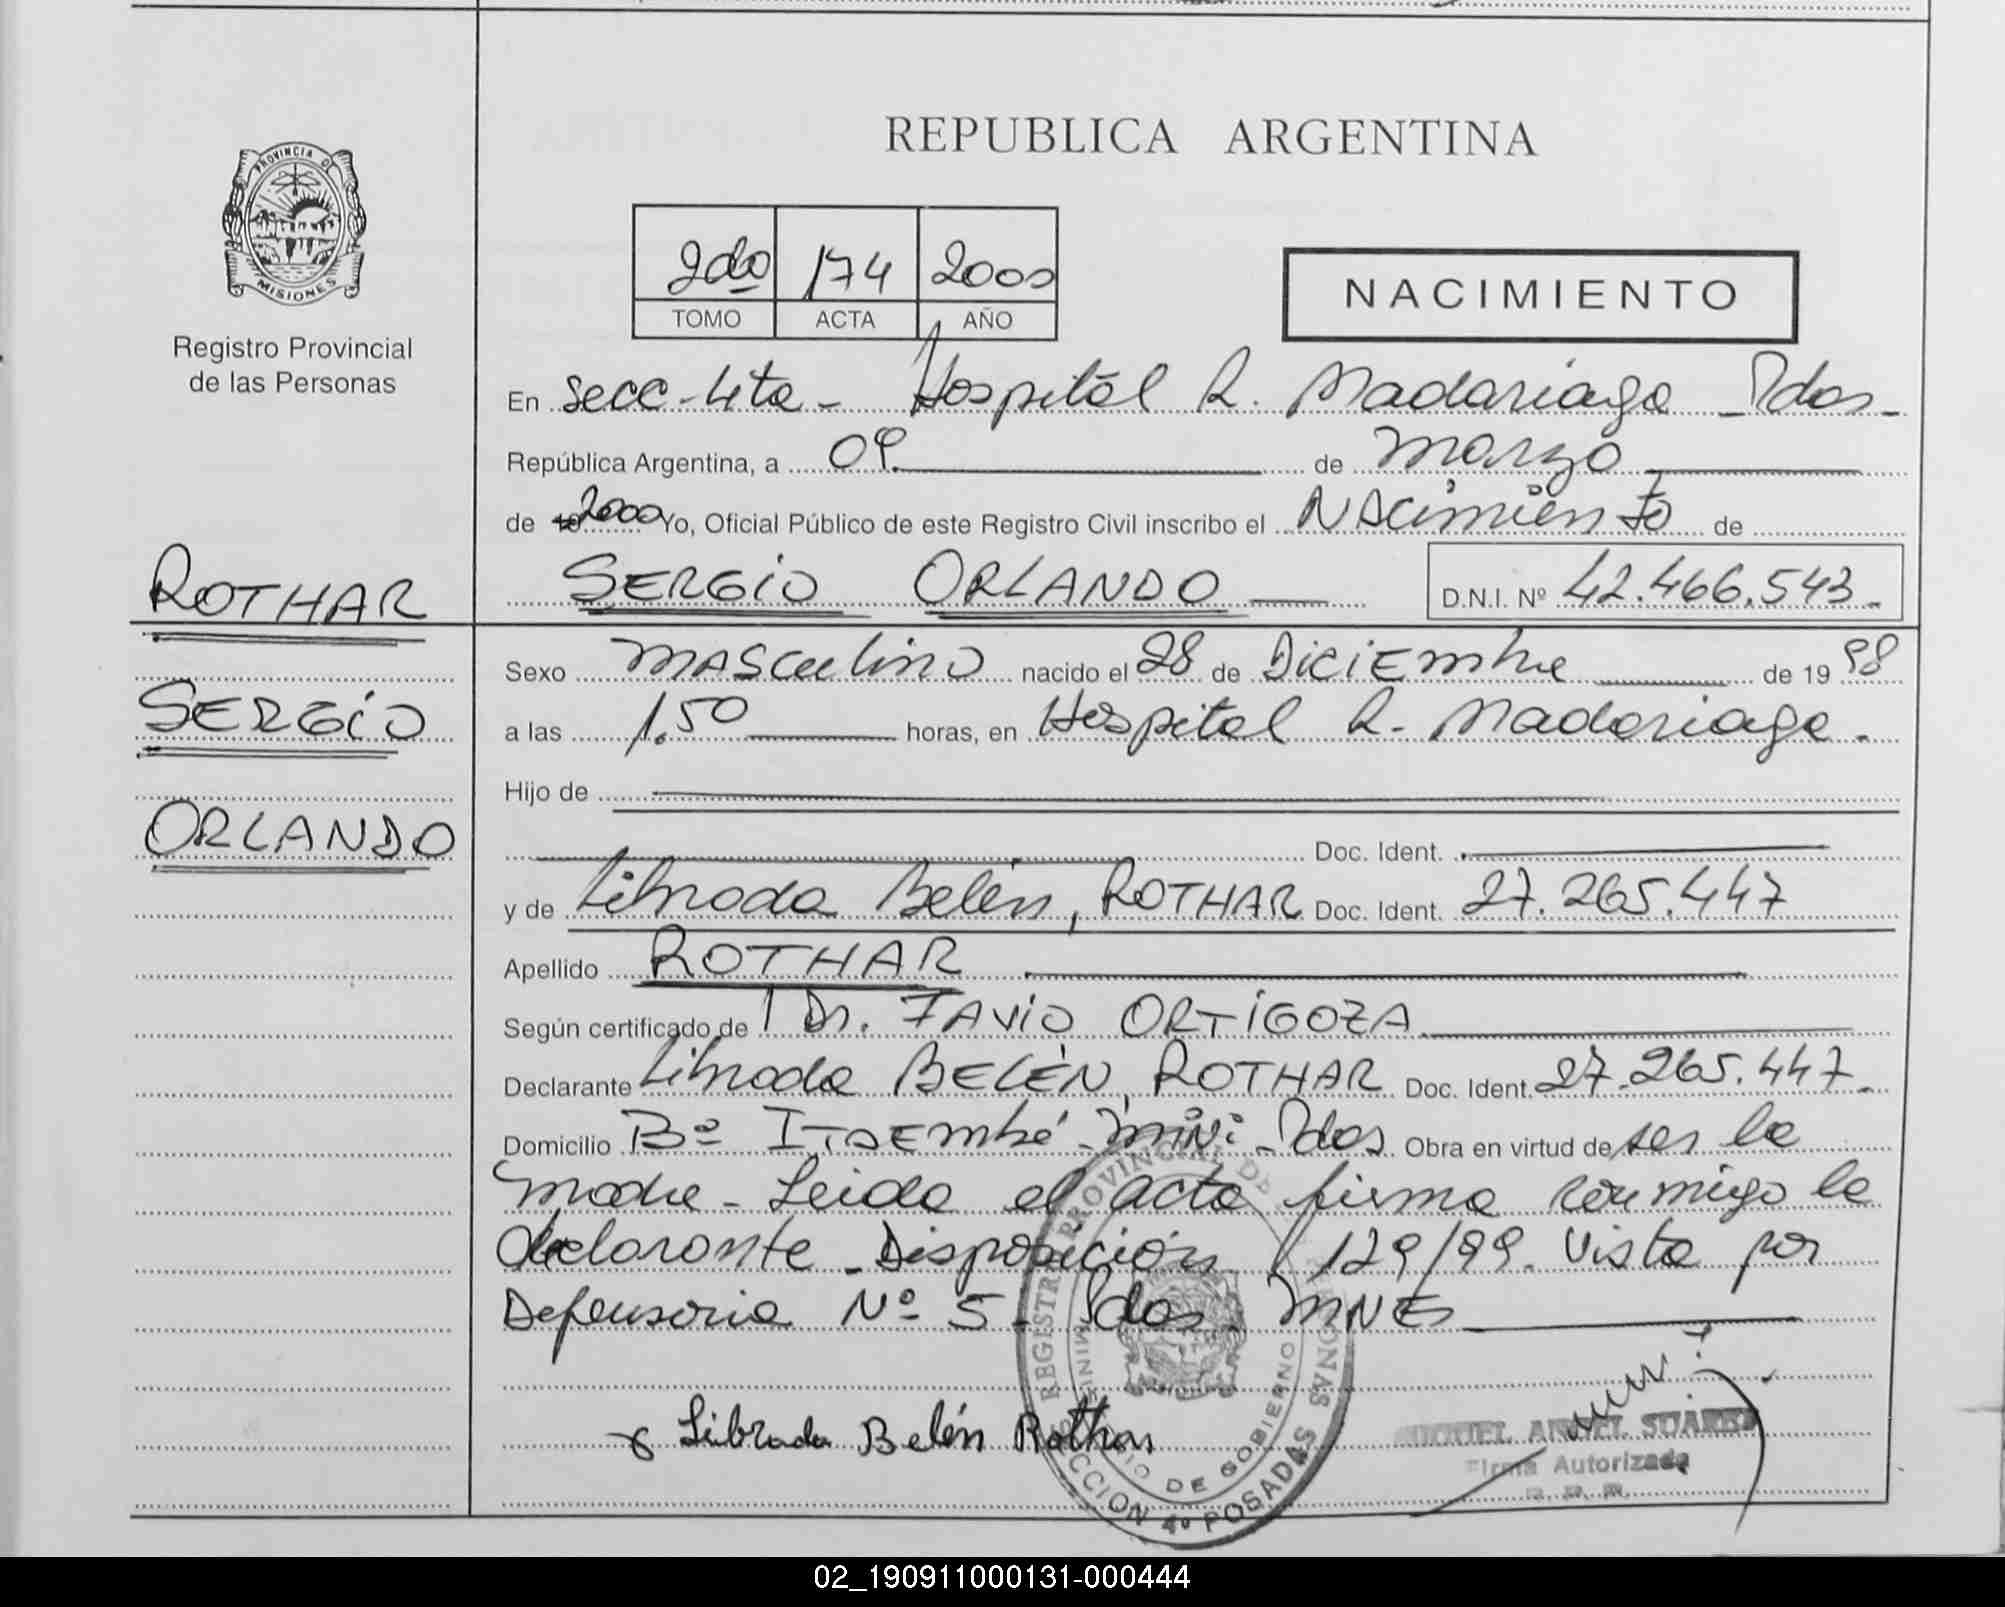 REPUBLICA ARGENTINA
PROVINCIA DE
MISIONES
Registro Provincial
de las Personas
2do 174 2000
TOMO ACTA AÑO
NACIMIENTO
En Secc-4ta- Hospital R. Madariaga - Pdas-
República Argentina, a 09. de Marzo
de 2000 Yo, Oficial Público de este Registro Civil inscribo el NAcimiento de
SERGIO ORLANDO D.N.I. Nº 42.466.543.-
ROTHAR
SERGIO
ORLANDO
Sexo MASculino nacido el 28 de DiciEmbre de 19 98
a las 1.50 horas, en Hospital R. Madariaga.
Hijo de
Doc. Ident.
y de Librada Belén, ROTHAR Doc. Ident. 27.265.447
Apellido ROTHAR
Según certificado de Dr. FAVIO ORTIGOZA
Declarante Librada BELÉN, ROTHAR Doc. Ident. 27.265.447.-
Domicilio Bº ITAEmbé-MiNi-Pdas Obra en virtud de ser la
madre- Leida el acta firma conmigo la
declarante-Disposición 129/99. Vista por
Defensoria Nº 5- Pdas MNES
Librada Belén Rothar
REGISTRO PROVINCIAL DE LAS PERSONAS
MINISTERIO DE GOBIERNO
SECCION 4º POSADAS
MIGUEL ANGEL SUAREZ
Firma Autorizada
02_190911000131-000444